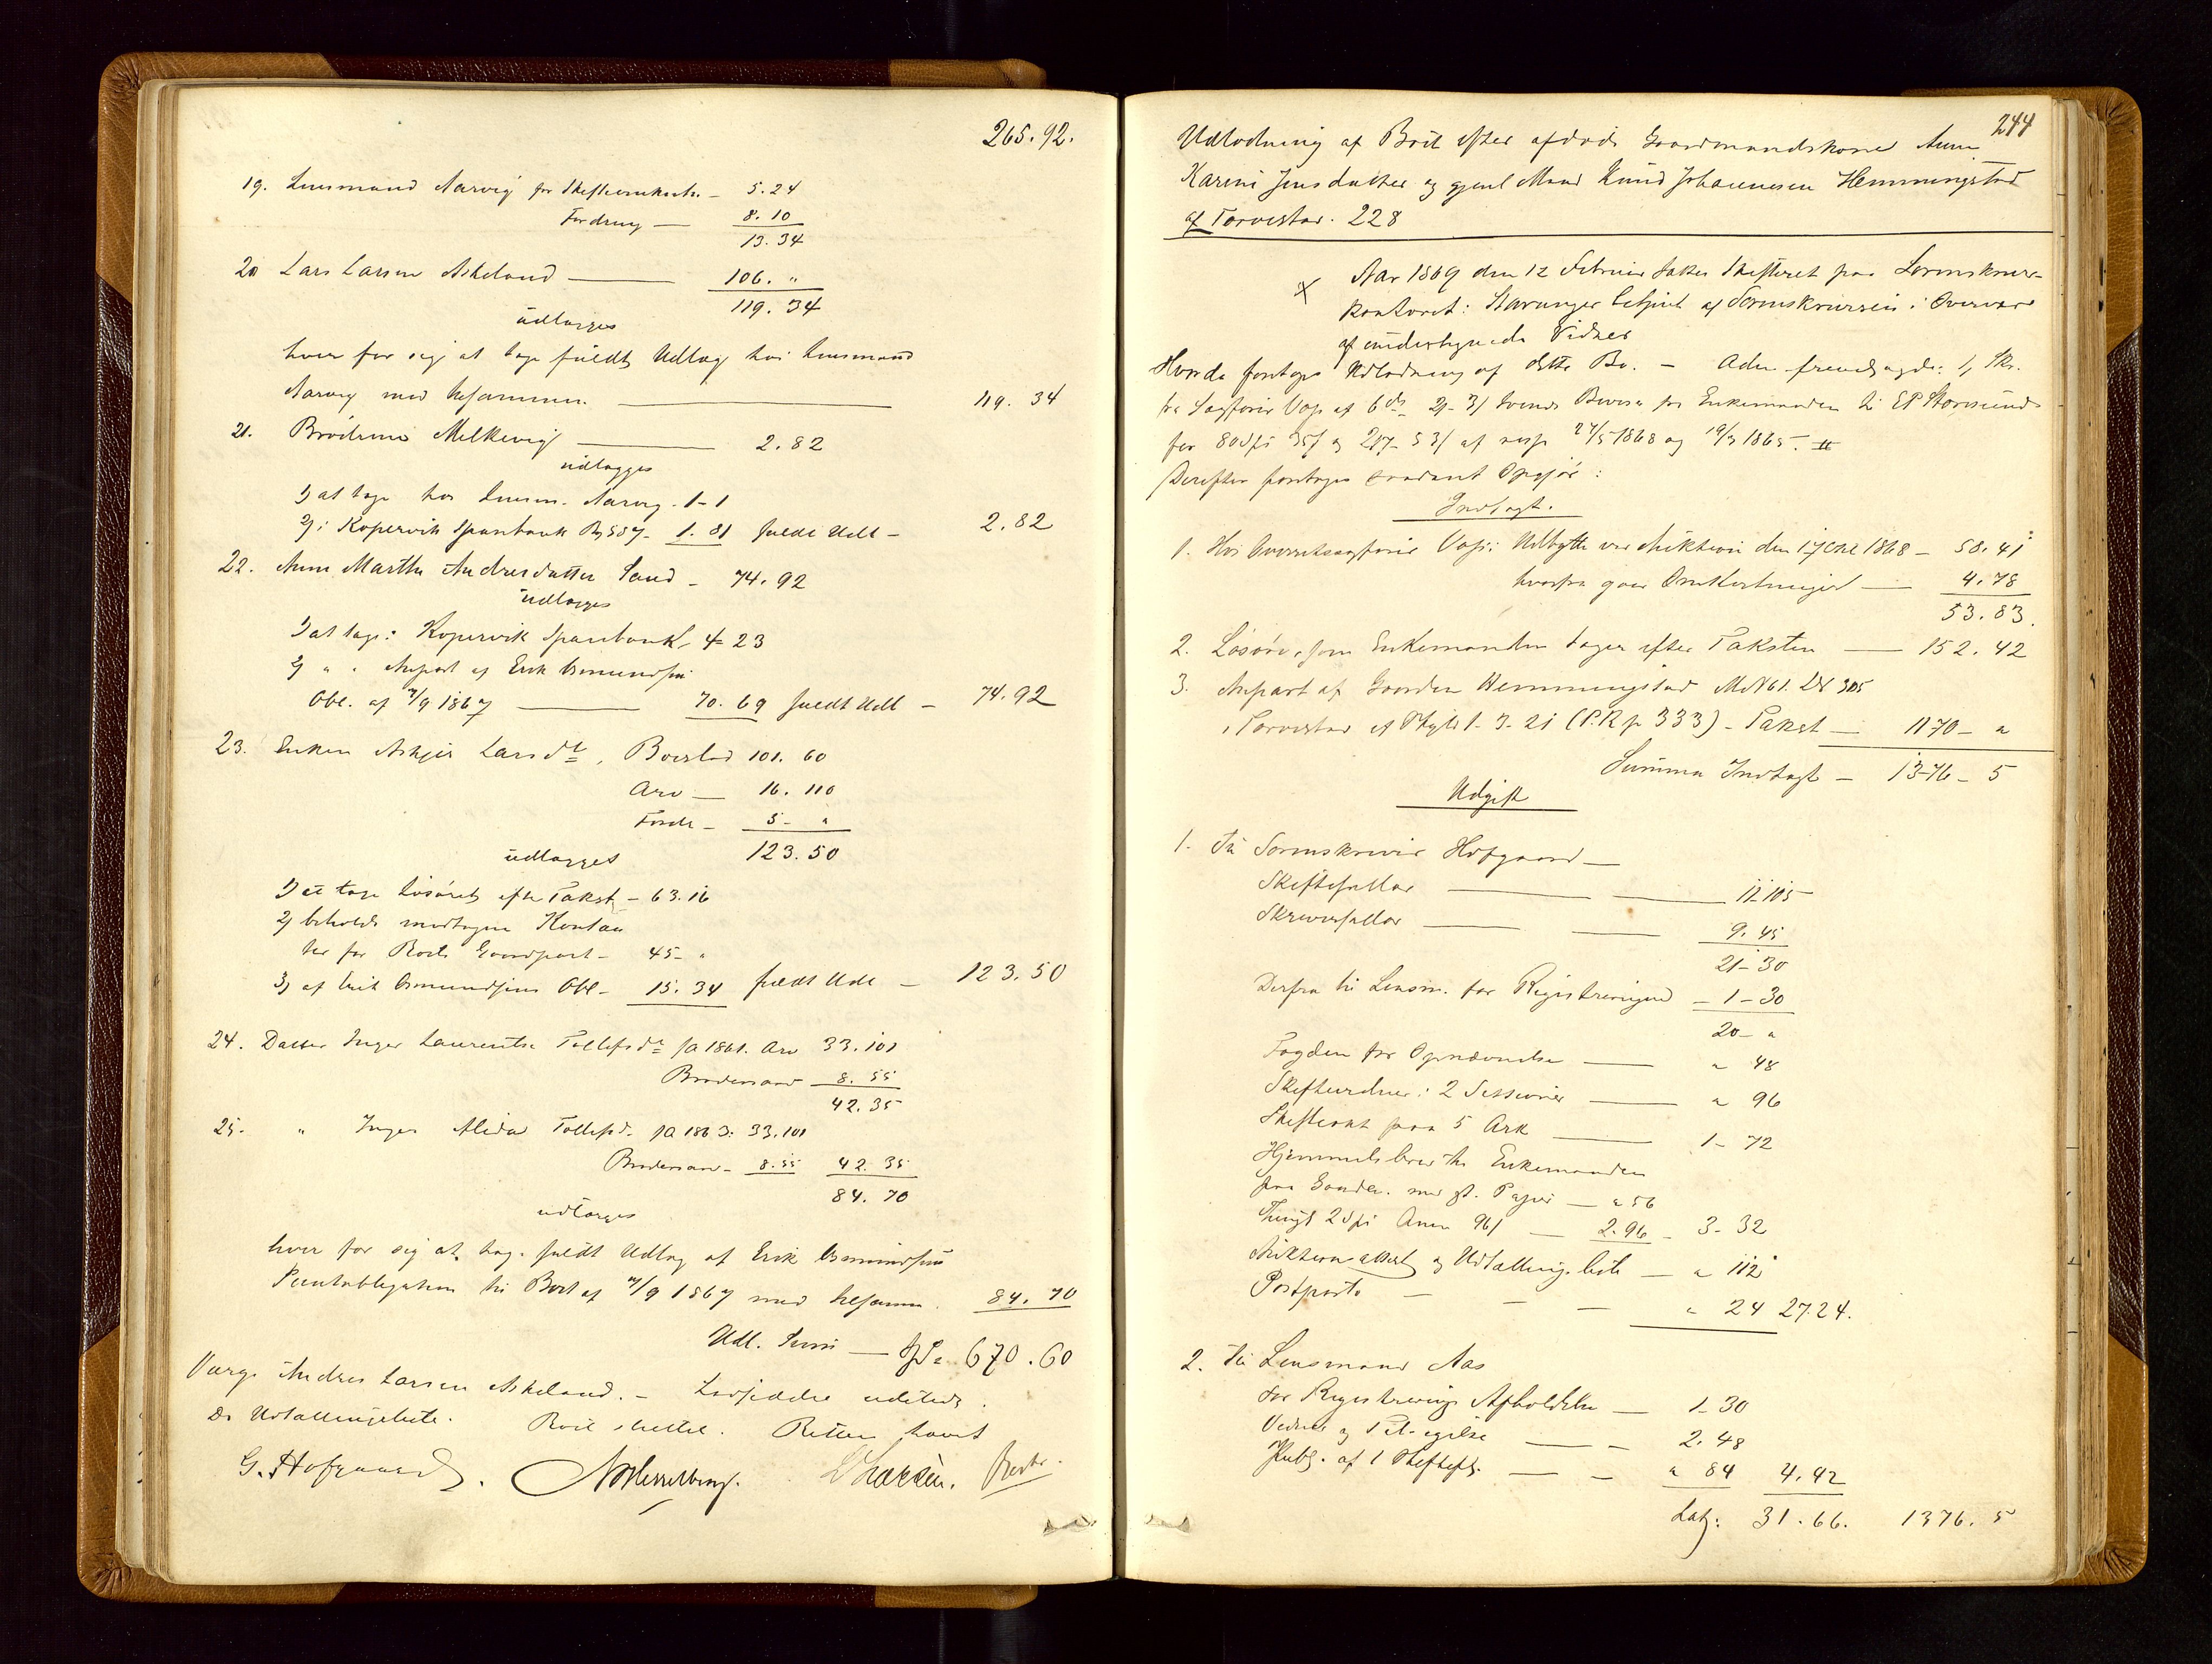 265.92.
19. Lensmand Aarvig for Skifteomkostn. – 5.24
Fordring — 8.10
13.34
20 Lars Larsen Askeland — 106. "
119.34
udlægges
hver for sig at tage fuldt Udlæg hos Lensmand
Aarvig med tilsammen. — 119. 34
21. Brödrene Melkevig — 2.82
udlægges
1) at tage hos Lensm. Aarvig. 1–1
2) i Kopervik Sparebank 1. 81 fuldt Udl – 2.82
22. Anne Marthe Andresdatter Sand – 74.92
udlægges
1) at tage i Kopervik Sparebank 4– 23
2) " " Anpart af Erik Asmundsens
Obl. af 7/9 1867 — 70. 69 fuldt Udl – 74.92
23. Enken Askjer Larsdr, Boeslod 101. 60
Arv — 16. 110
Fordr – 5– "
udlægges 123.50
1) at tage Lösöret efter Takst – 63.16
2) beholde modtagne Kontan
ter for Boets Gaardpart – 45– "
3) af Erik Asmundsens Obl – 15. 34 fuldt Udl – 123.50
24. Datter Inger Laurentse Tollefsdr fd 1861. Arv 33.101
Broderarv – 8. 55
42.35
25. " Inger Alida Tollefsd. fd 1863: 33.101
Broderarv – 8.55 42. 35
84. 70
udlægges
hver for sig at tage fuldt Udlæg af Erik Asmundsens
Panteobligation til Boet af 7/9 1867 med tilsamm. 84. 70
Udl. Sum — Spd 670.60
Værge Andres Larsen Askeland. –
Do Udtællingsliste. Boet sluttet. Retten hævet
G. Hofgaard.
244
Udlodning af Boet efter afdöde Gaardmandskone Anne
Karine Jensdatter og gjenl Mand Knud Johannesen Hemmingstad
af Torvestad. 228
x Aar 1869 den 12 Februar sattes Skifteret paa Sorenskriver-
kontoret i Stavanger betjent af Sorenskriveren i Overvær
af undertegnede Vidner
Hvorda foretoges Udlodning af dette Bo. – Adm fremlagde: 1, Skr.
fra Sagförer Vaff af 6 ds 2– 3) tvende Beviser fra Enkemanden til EP Storesund
for 80 Spd 35 f og 217– 53 f af resp 27/5 1868 og 19/3 1865.
Derefter foretoges saadant Opgjör:
Indtægt.
1. Hos Overretssagförer Vaff i Udbytte ved Auktion den 17 Okt 1868 – 58. 41
hvorfra gaar Omkostninger — 4. 78
53.83.
2. Lösöre, som Enkemanden tager efter Taksten — 152.42
3. Anpart af Gaarden Hemmingstad MN 61. LN 305
i Torvestad af Skyld 1– 3– 21 (P.R p 333) – Takst — 1170 – "
Summa Indtægt – 1376 – 5
Udgift
1. Til Sorenskriver Hofgaard —
Skiftesallar — 11 105
Skriversallar — 9. 45
21– 30
Derfra til Lensm. for Registreringen – 1– 30
20– "
Fogden for Opnævnelse — " 48
Skiftevidner i 2 Sessioner — " 96
Skifteakt paa 5 Ark — 1– 72
Hjemmelsbrev til Enkemanden
paa Gaarden. med st. Papir — " 56
Tingl 2 Spd Anm 96 f — 2.96 – 3– 32
Auktionsattest og Udtællingsliste — " 112
Postporto — " 24 27.24.
2. Til Lensmand Aas
for Registrerings Afholdelse — 1–30
Vidner og Tilsigelse — 2. 48
Publ. af 1 Skifte — " 84 4. 42
Lat: 31.66. 1376. 5